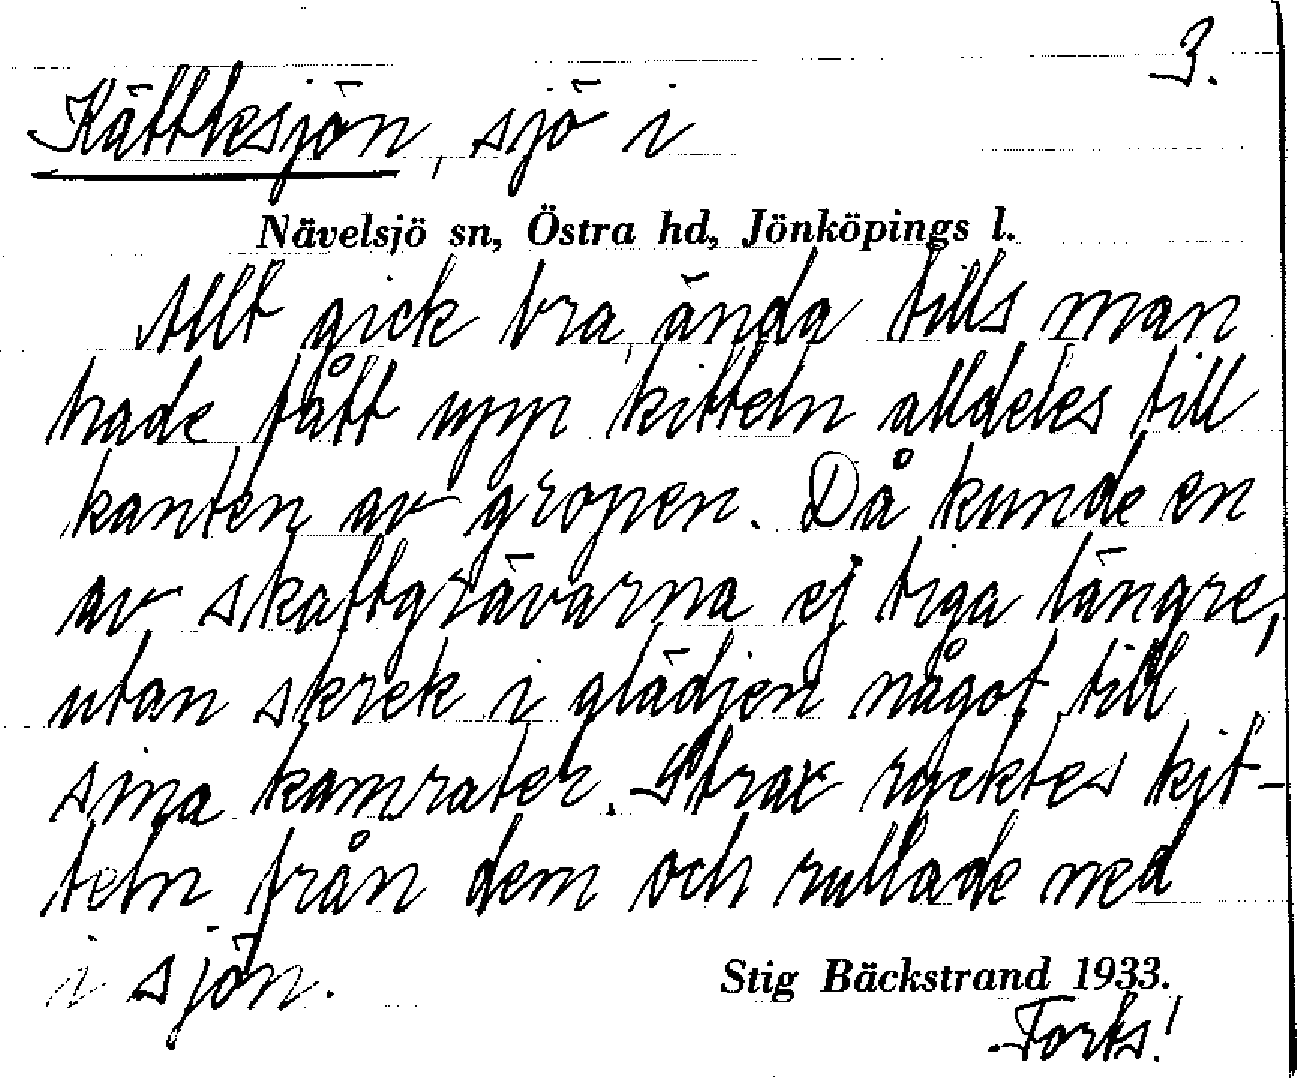 3.
Kättlesjön, sjö i
Nävelsjö sn, Östra hd, Jönköpings l.
Allt gick bra, ända tills man
hade fått upp kitteln alldeles till
kanten av gropen. Då kunde en
av skattgrävarna ej tiga längre,
utan skrek i glädjen något till
sina kamrater. Strax rycktes kit-
teln från dem och rullade ned
i sjön.
Stig Bäckstrand 1933.
Forts!